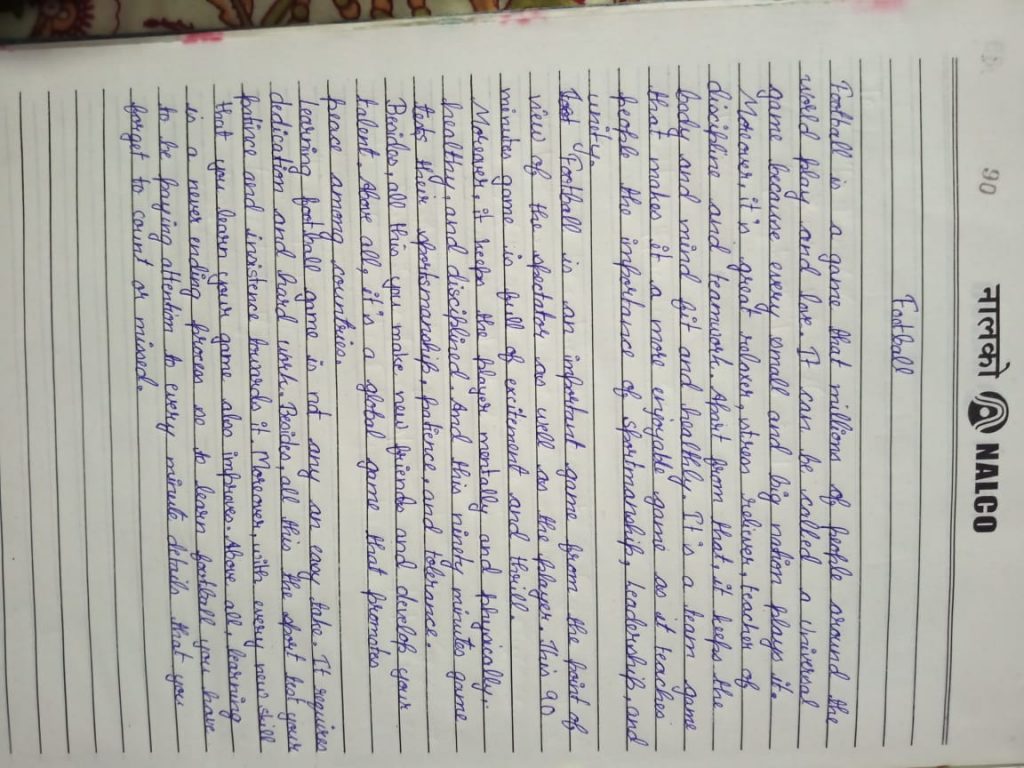 90
नालको NALCO
Football
Football is a game that millions of people around the
world play and love. It can be called a universal
game because every small and big nation plays it.
Moreover, it's great relaxer, stress reliever, teacher of
discipline and teamwork. Apart from that, it keeps the
body and mind fit and healthy. It is a team game
that makes it a more enjoyable game as it teaches
people the importance of sportmanship, leadership, and
unity.
Football is an important game from the point of
view of the spectator as well as the player. This 90
minutes game is full of excitement and thrill.
Moreover, it keeps the player mentally and physically,
healthy, and disciplined. And this ninety minutes game
tests their sportsmanship, patience, and tolerance.
Besides, all this you make new friends and develop your
talent. Above all, it's a global game that promotes
peace among countries.
Learning football game is not any an easy take. It requires
dedication and hard work. Besides, all this the sport test your
patience and insistence towards it. Moreover, with every new skill
that you learn your game also improves. Above all, learning
is a never ending process so to learn football you have
to be paying attention to every minute details that you
forget to count or missed.